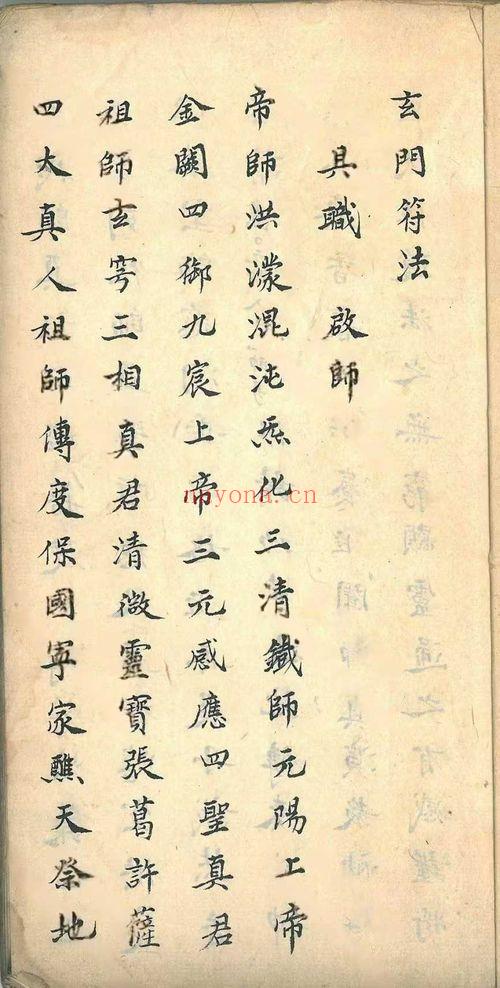 玄門符法
具職 啟師
帝師洪濛混沌炁化三清鐵師元陽上帝
金闕四御九宸上帝三元感應四聖真君
祖師玄穹三相真君清微靈寶張葛許薩
四大真人祖師傳度保國寧家醮天祭地
nayona.cn